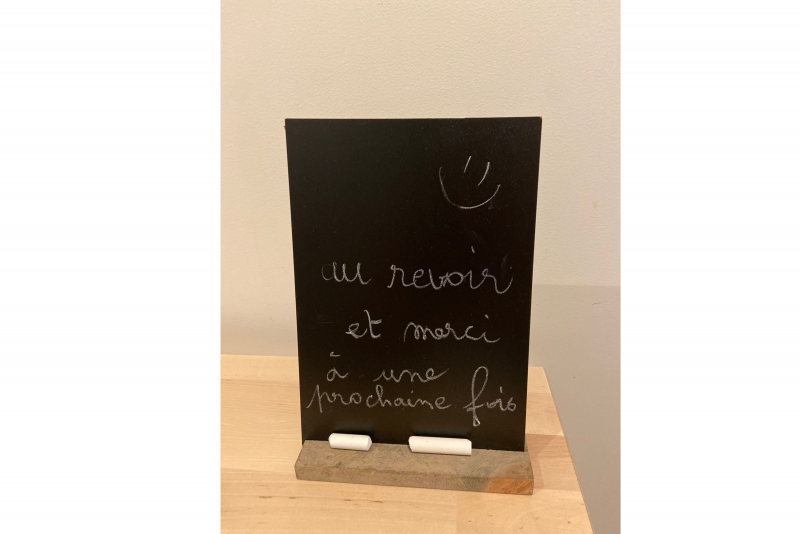 au revoir
et merci
à une
prochaine fois